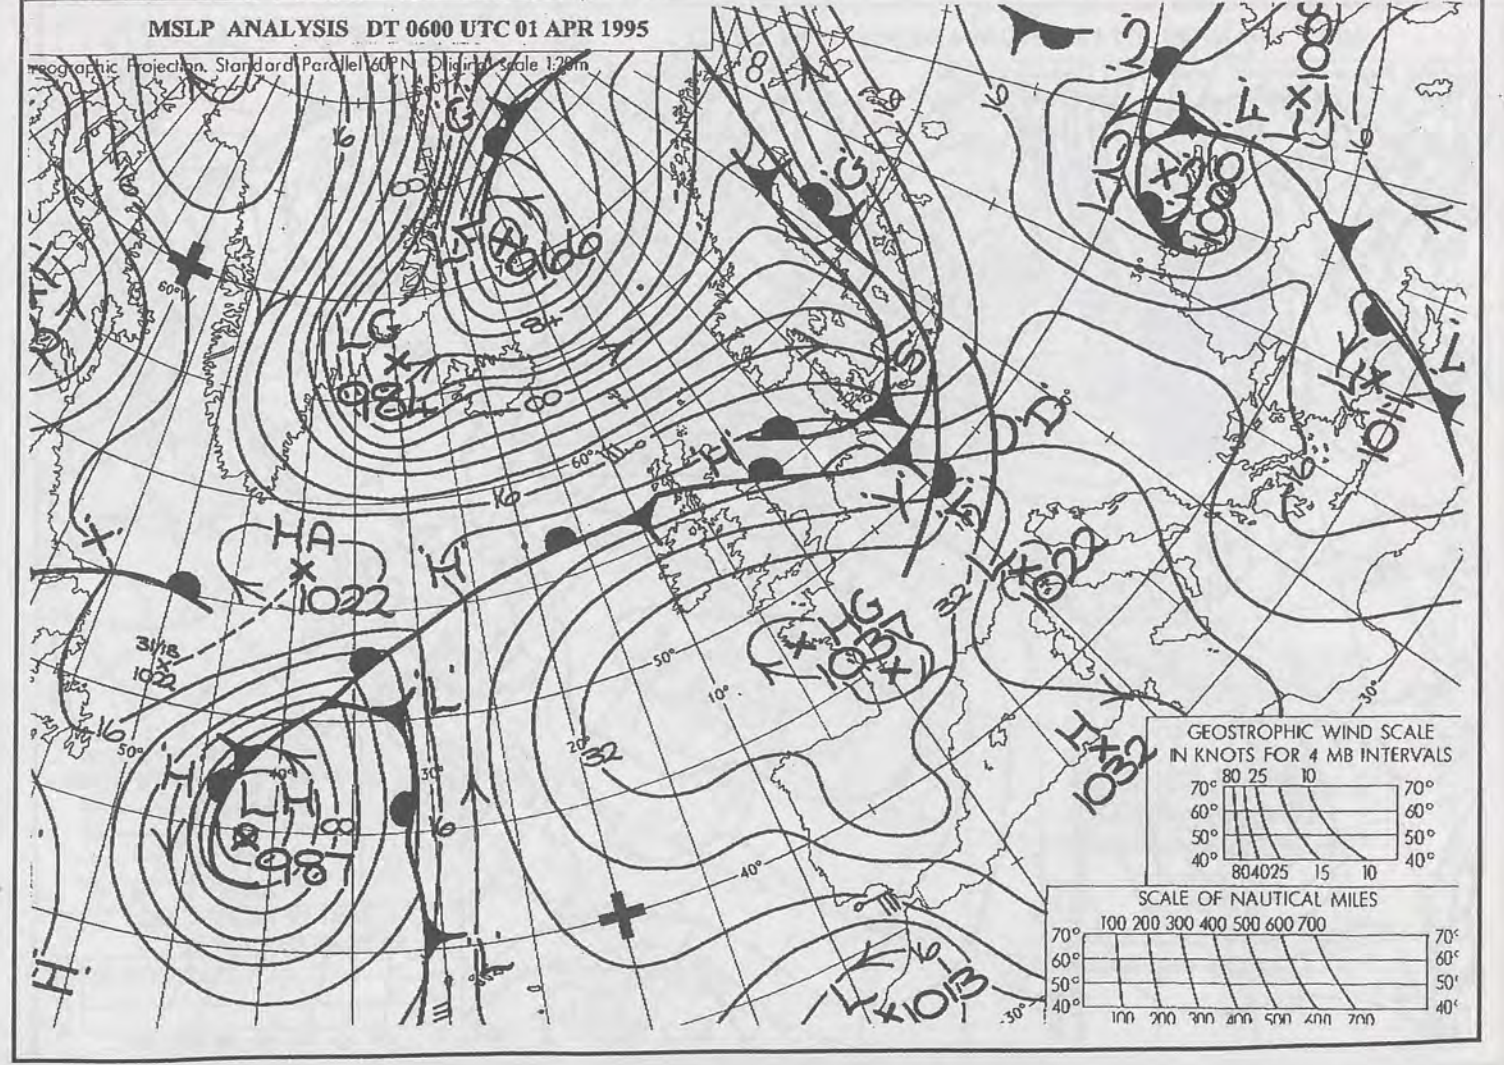 MSLP ANALYSIS DT 0600 UTC 01 APR 1995
reographic Projection. Standard Parallel 60°N Original scale 1:20m
16
8
16
16
8
966
84
LG
984
8
60°W
60°
16
HA
1022
31/18
1022
16
50°
40°
30°
H
LH
987
8
16
50°
10°
20°
32
40°
HG
1037
32
1022
1011
16
H
1032
16
1013
30°
30°
GEOSTROPHIC WIND SCALE
IN KNOTS FOR 4 MB INTERVALS
80 25 10
70° 70°
60° 60°
50° 50°
40° 40°
80 40 25 15 10
SCALE OF NAUTICAL MILES
100 200 300 400 500 600 700
70° 70°
60° 60°
50° 50°
40° 40°
100 200 300 400 500 600 700